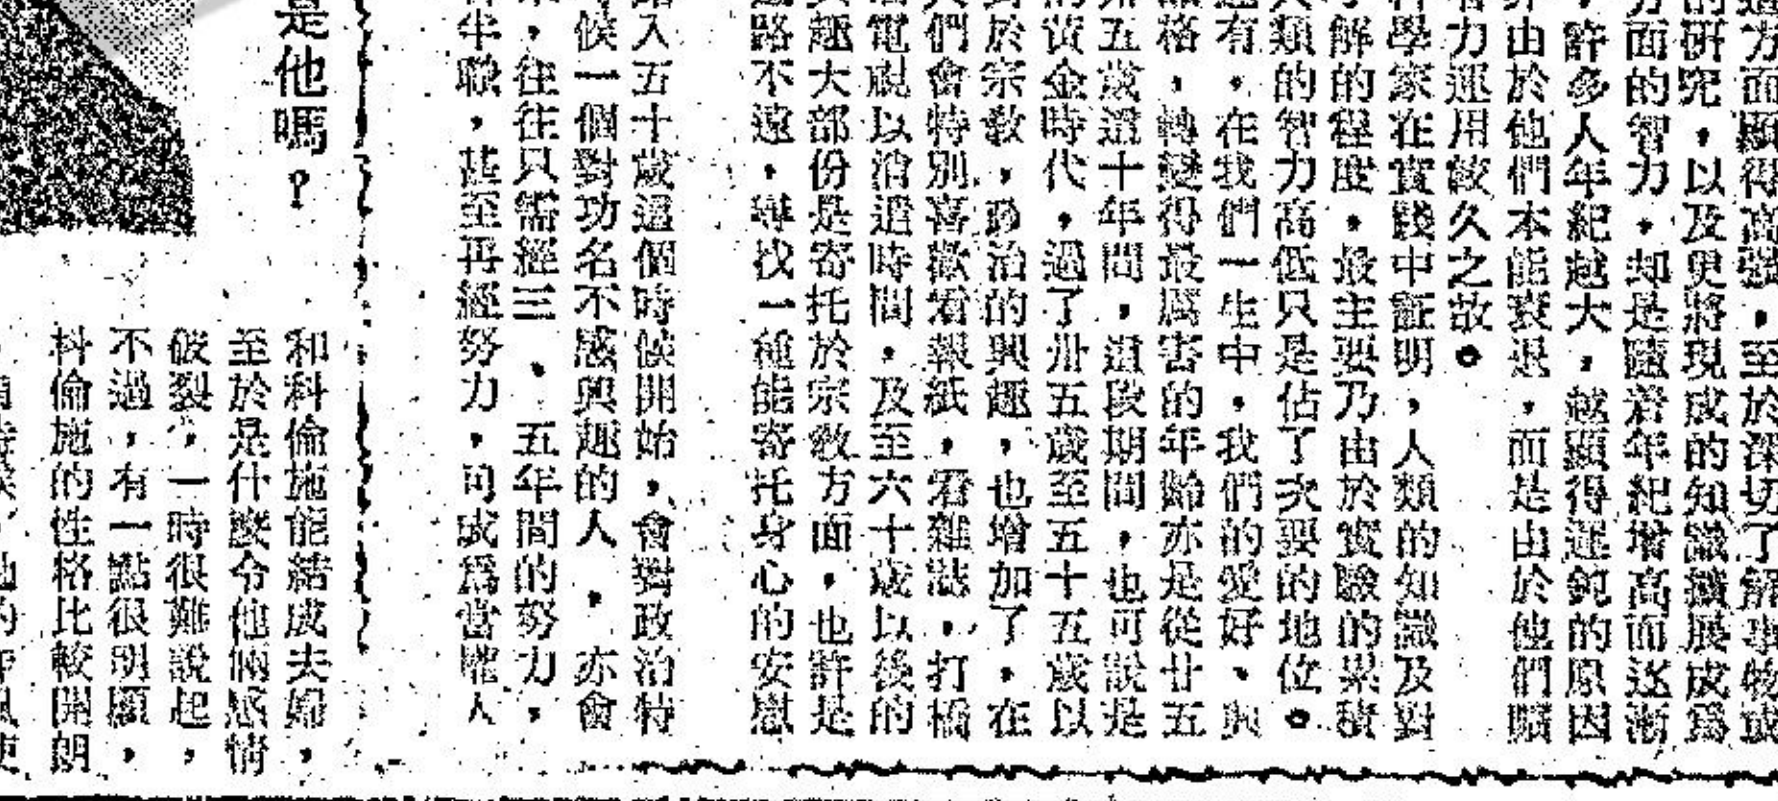 這方面顯得高強，至於深切了解事物或
的研究，以及更將現成的知識擴展成為
方面的智力，却是隨着年紀增高而逐漸
，許多人年紀越大，越顯得遲鈍的原因
由於他們本能衰退，而是由於他們曠
智力運用較久之故。
科學家在實踐中証明，人類的知識及對
了解的程度，最主要乃由於實驗的累積
人類的智力高低只是佔了次要的地位。
有，在我們一生中，我們的愛好、興
格，轉變得最厲害的年齡亦是從廿五
五歲這十年間，這段期間，也可說是
黃金時代，過了卅五歲至五十五歲以
對於宗教，政治的興趣，也增加了，在
人們會特別喜歡看報紙，看雜誌，打橋
看電視以消遣時間，及至六十歲以後的
興趣大部份是寄托於宗教方面，也許是
路不遠，尋找一種能寄托身心的安慰
踏入五十歲這個時候開始，會對政治特
候一個對功名不感興趣的人，亦會
，往往只需經三、五年間的努力，
半職，甚至再經努力，可成為當權人
是他嗎？
和科倫施能結成夫婦，
至於是什麼令他倆感情
破裂，一時很難說起，
不過，有一點很明顯，
科倫施的性格比較開朗